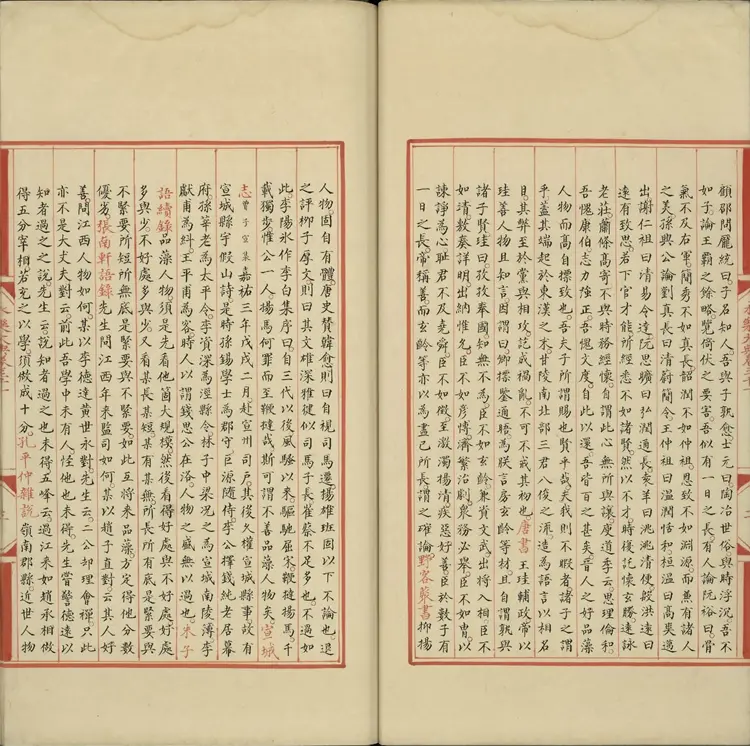 顧邵問龐統曰子名知人吾與子孰愈士元曰陶冶世俗與時浮沉吾不
如子論王霸之餘略覽倚伏之要害吾似有一日之長有人論阮裕曰骨
氣不及右軍簡秀不如真長韶潤不如仲祖思致不如淵源而兼有諸人
之美孫興公論劉真長曰清蔚簡令王仲祖曰溫潤恬和桓溫曰高爽邁
出謝仁祖曰清易令達阮思曠曰弘潤通長袁羊曰洮洮清便殷洪遠曰
遠有致思若下官才能所經悉不如諸賢然以不才時復託懷玄勝遠詠
老莊蕭條高寄不與時務經懷自謂此心無所與讓庾道季云思理倫和
吾愧康伯志力強正吾愧文度自此以還吾皆百之甚矣晉人之好品藻
人物而高自標致也吾夫子所謂賜也賢乎哉夫我則不暇者諸子之謂
乎蓋其端起於東漢之末甘陵南北部三君八俊之流造為語言以相名
目其弊至於黨與相攻訐或禍亂不可不戒其初也唐書王珪輔政帝以
珪善人物且知言因謂曰卿標鑒通晤為朕言房玄齡等材且自謂孰與
諸子賢珪曰孜孜奉國知無不為臣不如玄齡兼資文武出將入相臣不
如靖敷奏詳明出納惟允臣不如彥博濟繁治劇衆務必舉臣不如冑以
諫諍為心恥君不及堯舜臣不如徵至激濁揚清疾惡好善臣於數子有
一日之長帝稱善而玄齡等亦以為盡己所長謂之確論野客叢書抑揚
人物固自有體唐史贊韓愈則曰自視司馬遷揚雄班固以下不論也退
之評柳子厚文則曰其文雄深雅健似司馬子長崔蔡不足多也不過如
此李陽冰作李白集序曰自三代以後風騷以來驅馳屈宋鞭撻揚馬千
載獨步惟公一人揚馬何罪而至鞭撻哉斯可謂不善品藻人物矣宣城
志曹子宣集嘉祐三年戊戌二月赴宣州司戶其後久權宣城縣事故有
宣城縣宇假山詩是時孫錫學士為郡守臣源隨侍李公擇錢純老居幕
府孫莘老為太平令李資深為涇縣令林子中梁況之為宣城南陵簿李
獻甫為糾王平甫為客時人以謂錢思公在洛人物之盛無以過也朱子
語續錄品藻人物須是先看他箇大規模然後看得好處與不好處好處
多與少不好處多與少又看某長某短某有某無所長所有底是緊要與
不緊要所短所無底是緊要與不緊要如此互將來品藻方定得他分數
優劣張南軒語錄先生問江西年來監司如何某以趙子直對云其人好
善問江西人物如何某以李德達黃世永對先生云二公卻理會禪只此
亦不是大丈夫對云前此吾學中未有人怪他也未得先生嘗警德達以
知者過之之說先生云說知者過之也未得五峰云過江來如趙丞相做
得五分宰相若充之以學須做成十分孔平仲雜說嶺南郡縣近世人物